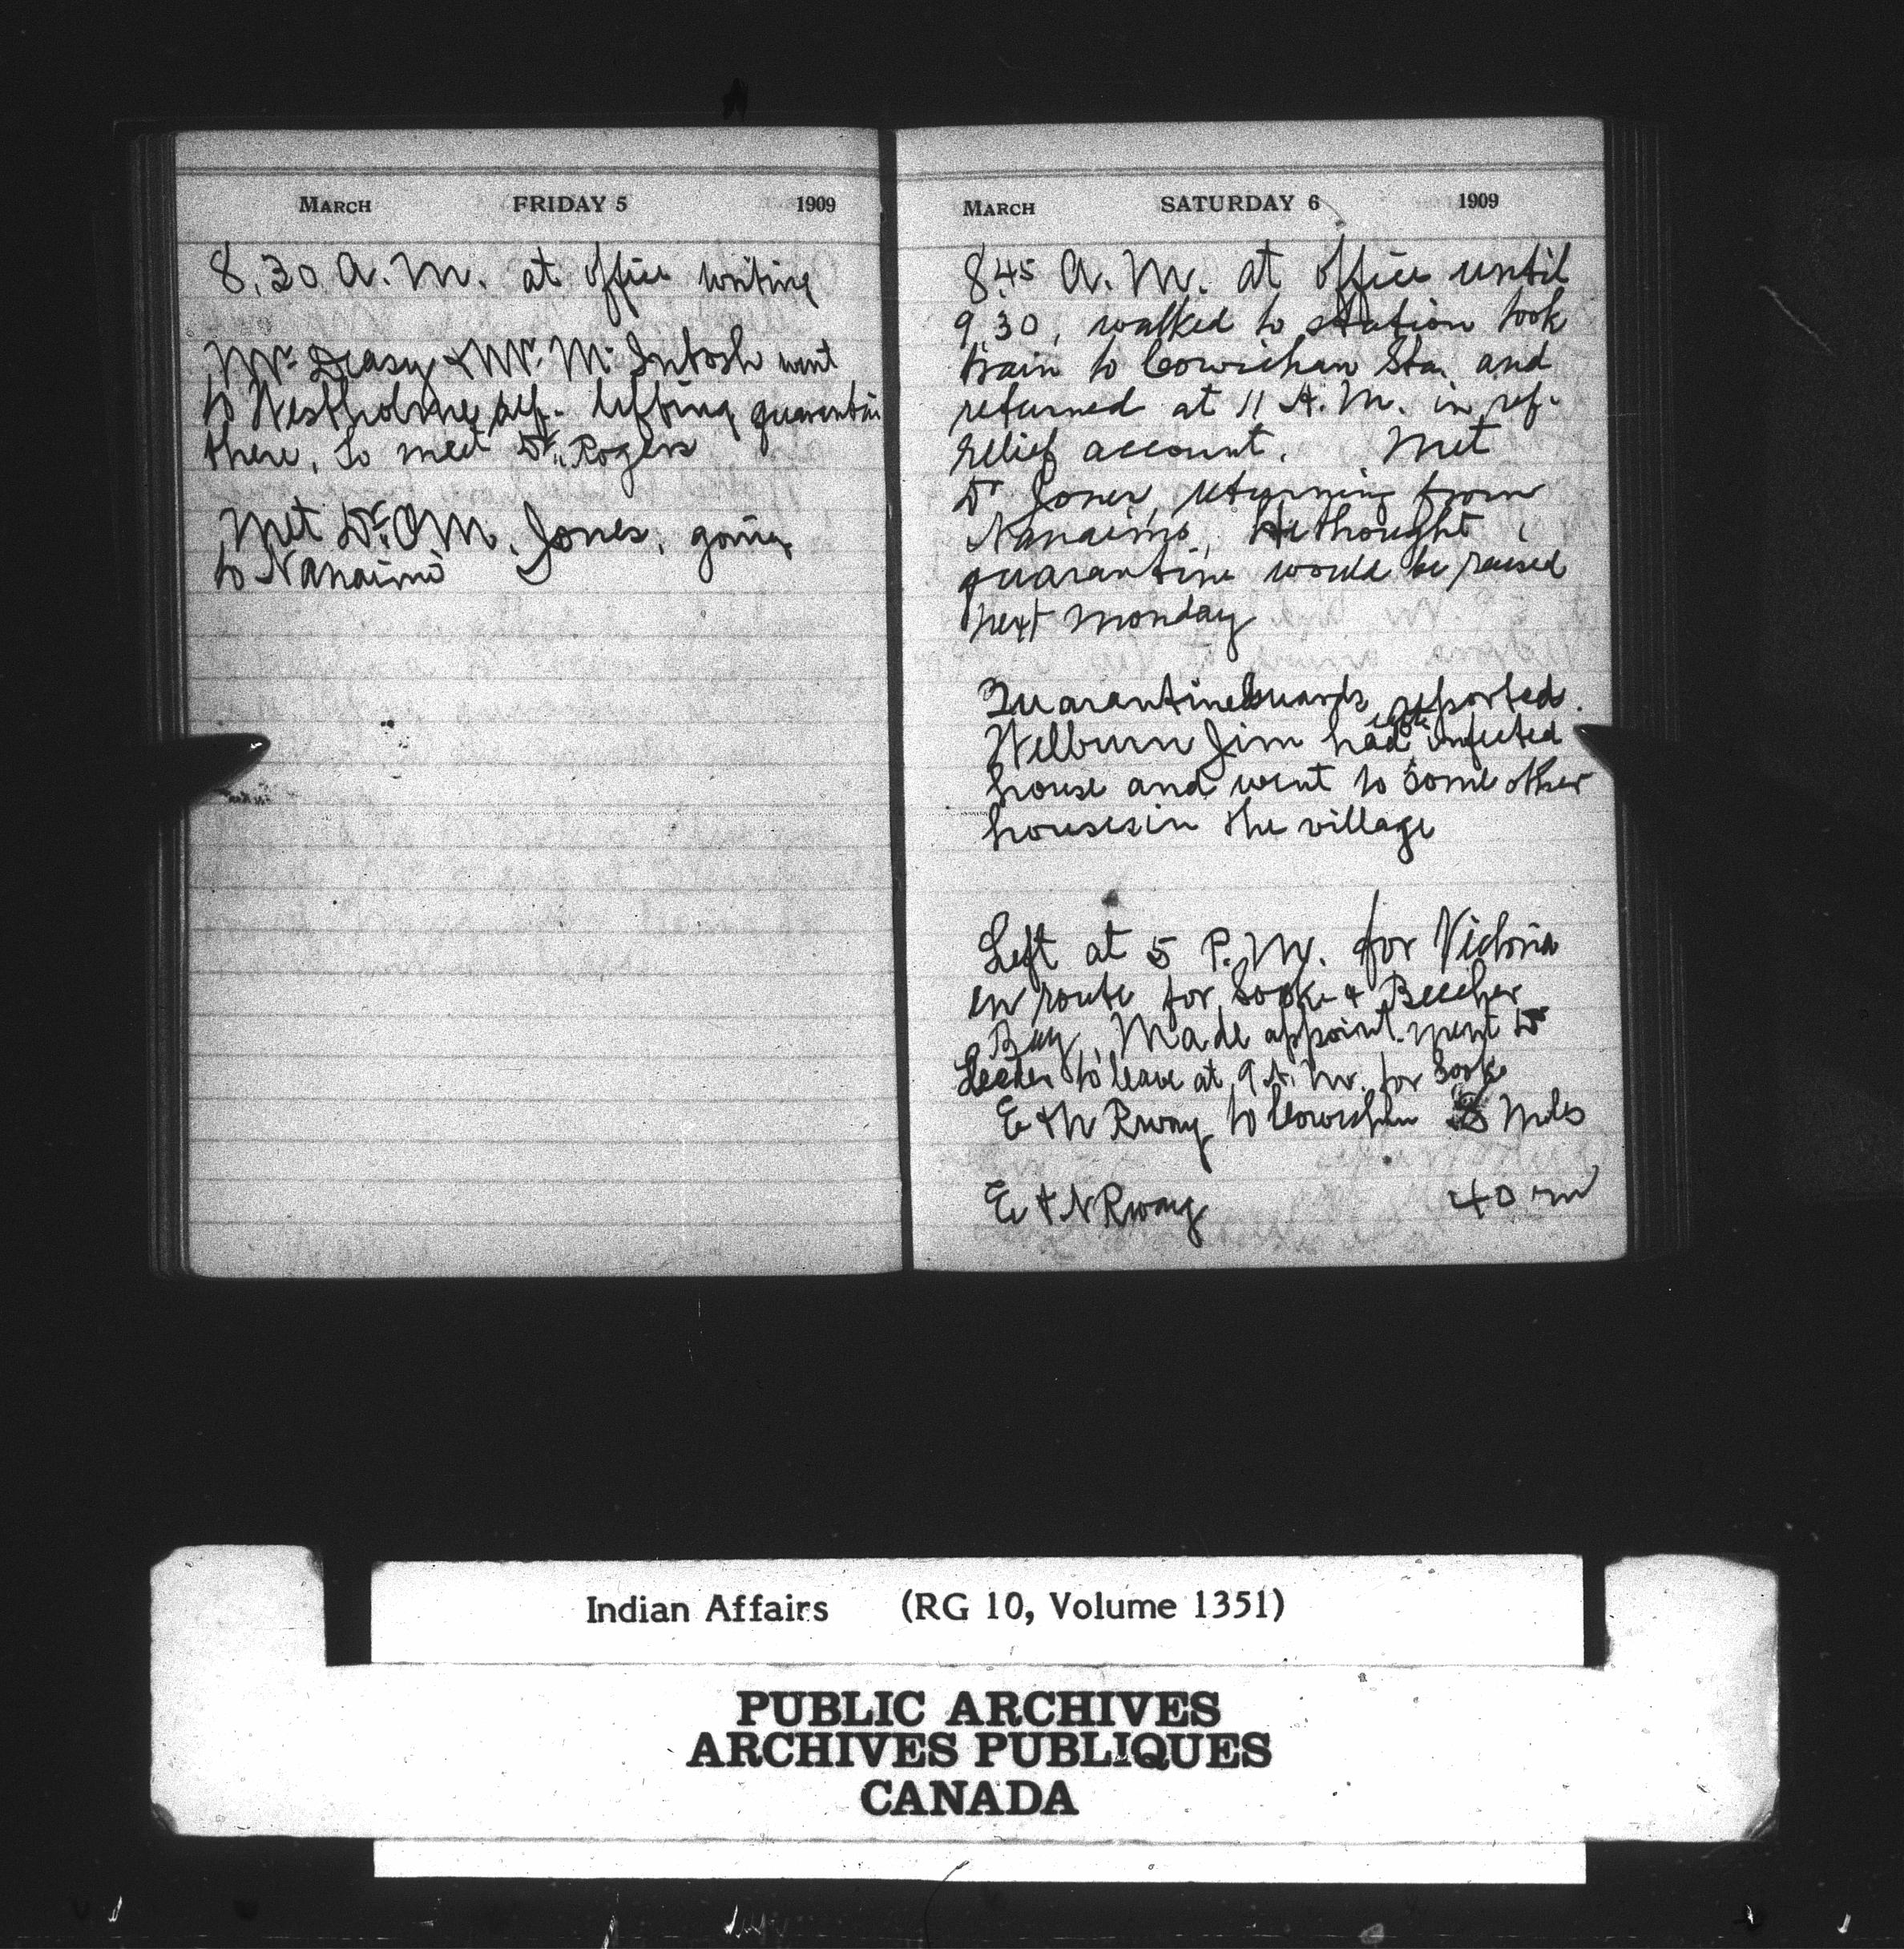 MARCH FRIDAY 5 1909
8.30 A.M. at office writing
Mr. Deasy & Mr. McIntosh went
to Westholme ref. lifting quarantin
there, to meet Dr. Rogers
Met Dr. O M. Jones, going
to Nanaimo
MARCH SATURDAY 6 1909
8.45 A.M. at office until
9.30, walked to station took
train to Cowichan Sta. and
returned at 11 A.M. in ref.
relief account. Met
Dr Jones, returning from
Nanaimo, He thought
quarantine would be raised
next Monday
Quarantine Guards reported.
Welburn Jim had left infected
house and went to some other
houses in the village
Left at 5 P.M. for Victoria
en route for Sooke & Beecher
Bay. Made appoint-ment
to leave at 9 A.M. for Sooke
E & N Rway to Cowichan 8 Miles
E & N Rway 40 m
Indian Affairs (RG 10, Volume 1351)
PUBLIC ARCHIVES
ARCHIVES PUBLIQUES
CANADA